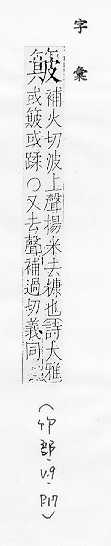 字彙
簸
補火切波上聲揚米去糠也詩大雅
或簸或蹂○又去聲補過切義同
(竹部-V.9-P17)